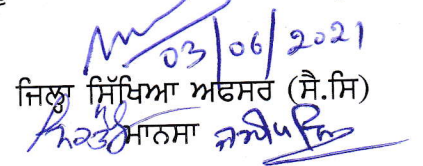 03/06/2021
ਜਿਲ੍ਹਾ ਸਿੱਖਿਆ ਅਫਸਰ (ਸੈ.ਸਿ)
ਮਾਨਸਾ